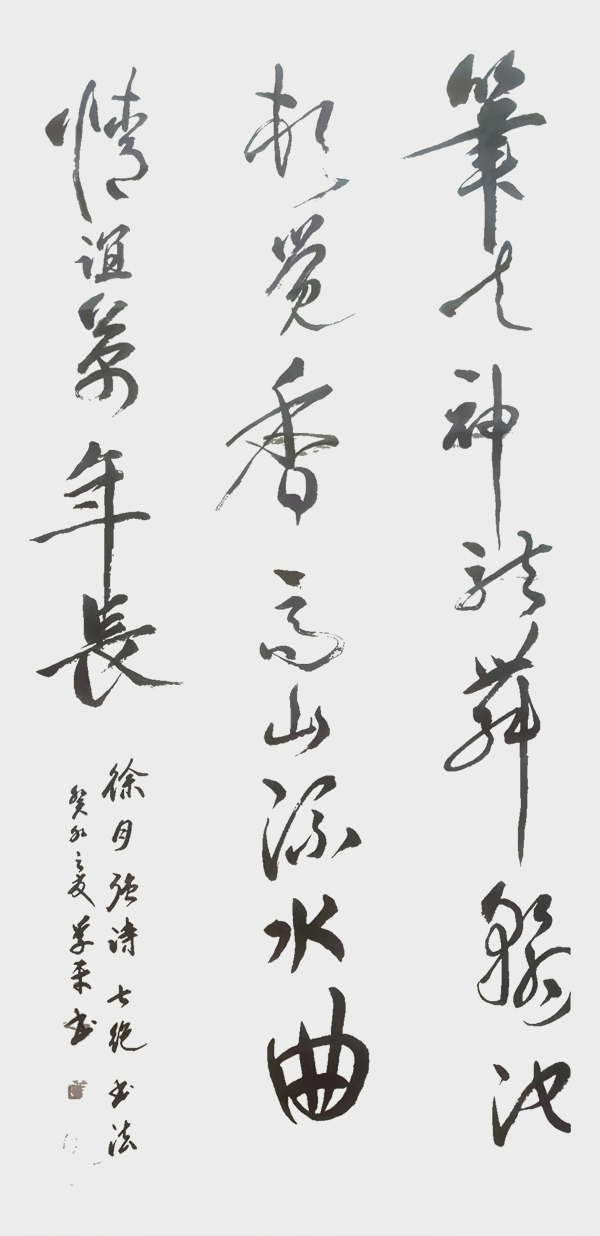 筆走神龙舞池
頓觉香高山流水曲
情谊萬年長
徐月强诗七绝书法
癸卯之夏书